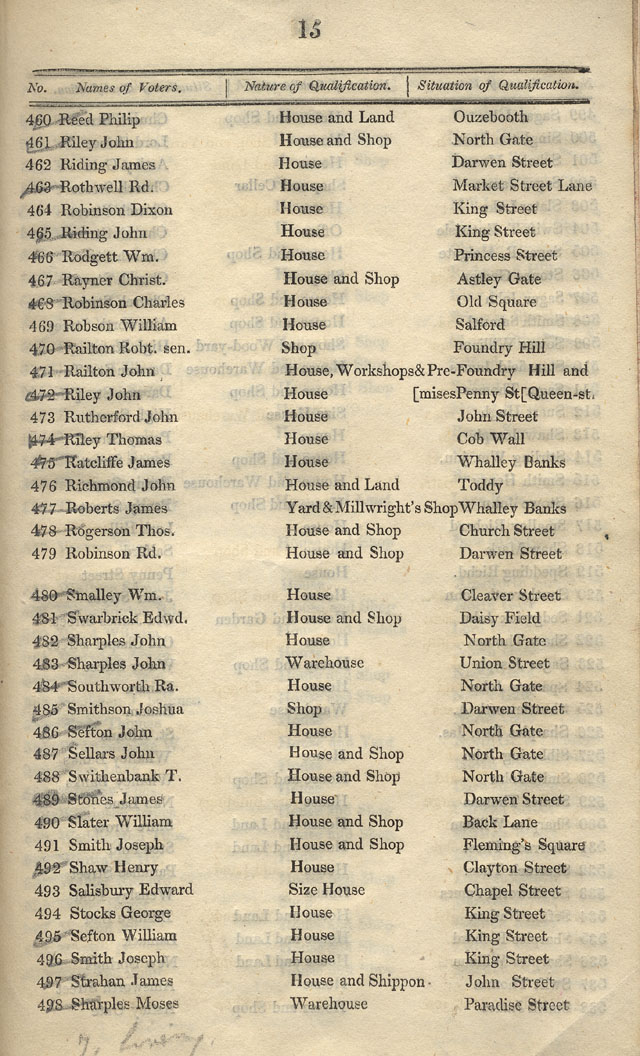 15
No. Names of Voters. | Nature of Qualification. | Situation of Qualification.
460 Reed Philip House and Land Ouzebooth
461 Riley John House and Shop North Gate
462 Riding James House Darwen Street
463 Rothwell Rd. House Market Street Lane
464 Robinson Dixon House King Street
465 Riding John House King Street
466 Rodgett Wm. House Princess Street
467 Rayner Christ. House and Shop Astley Gate
468 Robinson Charles House Old Square
469 Robson William House Salford
470 Railton Robt. sen. Shop Foundry Hill
471 Railton John House, Workshops & Pre-Foundry Hill and
472 Riley John House [mises Penny St [Queen-st.
473 Rutherford John House John Street
474 Riley Thomas House Cob Wall
475 Ratcliffe James House Whalley Banks
476 Richmond John House and Land Toddy
477 Roberts James Yard & Millwright's Shop Whalley Banks
478 Rogerson Thos. House and Shop Church Street
479 Robinson Rd. House and Shop Darwen Street
480 Smalley Wm. House Cleaver Street
481 Swarbrick Edwd. House and Shop Daisy Field
482 Sharples John House North Gate
483 Sharples John Warehouse Union Street
484 Southworth Ra. House North Gate
485 Smithson Joshua Shop Darwen Street
486 Sefton John House North Gate
487 Sellars John House and Shop North Gate
488 Swithenbank T. House and Shop North Gate
489 Stones James House Darwen Street
490 Slater William House and Shop Back Lane
491 Smith Joseph House and Shop Fleming's Square
492 Shaw Henry House Clayton Street
493 Salisbury Edward Size House Chapel Street
494 Stocks George House King Street
495 Sefton William House King Street
496 Smith Joseph House King Street
497 Strahan James House and Shippon John Street
498 Sharples Moses Warehouse Paradise Street